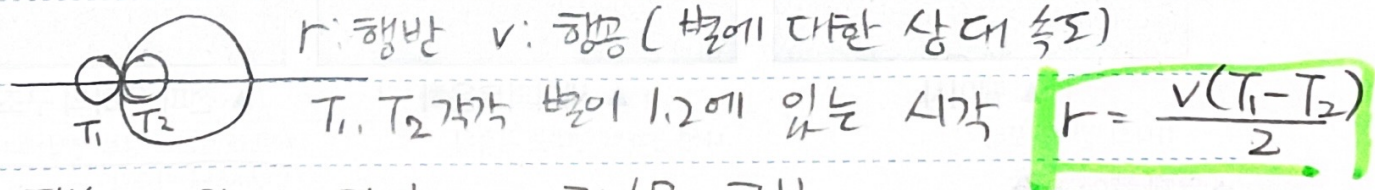 r: 행반 v: 행공 (별에 대한 상대 속도)
T₁ T₂ T₁, T₂ 각각 별이 1, 2에 있는 시각 r = v(T₁-T₂)/2